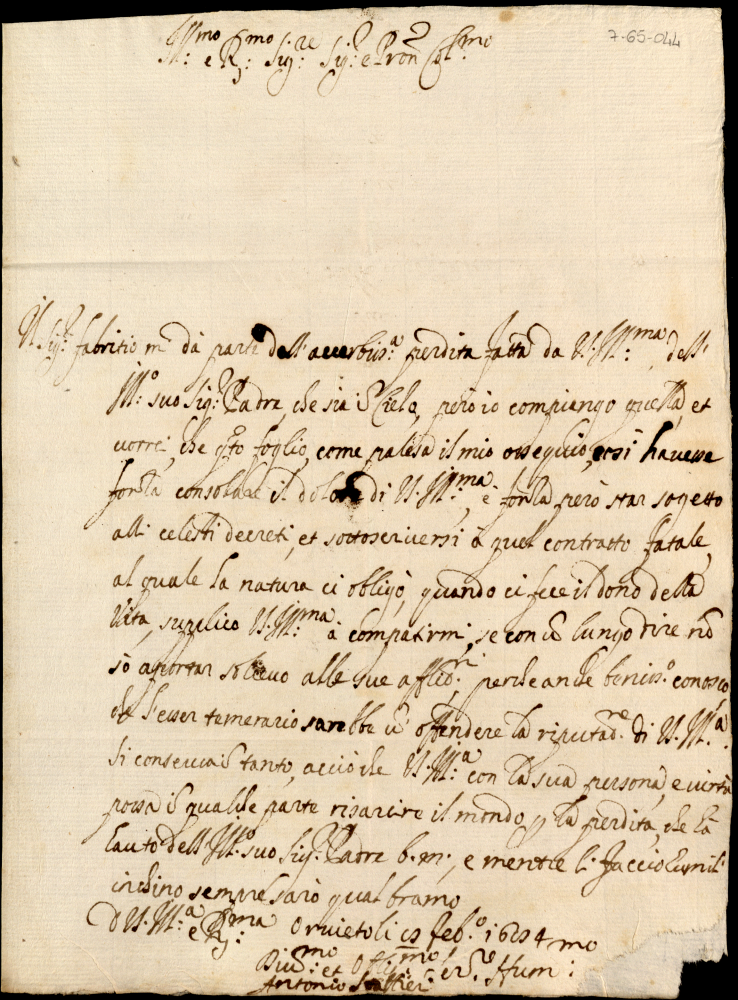 7-65-044
Ill:mo e R:mo Sig:re Sig:e e Pron Col:mo
Il Sig:r Fabritio m'dà parte dell'acerbiss:a perdita fatta da V.Ill:ma, dell'
Ill:o suo Sig:r Padre, che sia ī Cielo, però io compiango quella, et
vorrei, che q̃to foglio, come palesa il mio ossequio, così havesse
forza consolare il dolore di V.Ill:ma, è forza però star sogetto
alli celesti decreti, et sottoscriversi à quel contratto fatale,
al quale la natura ci obligò, quando ci fece il dono della
Vita, suplico V.Ill:ma à compatirmi, se con ū lungo dire nō
sò aportar solievo alle sue afflio:ni, perche anche beniss:o conosco
che l'esser temerario sarebbe ū offendere la riputat:ne di V.Ill:a.
Si conservi ī tanto, acciò che V.Ill:a con la sua persona, e virtù
possa ī qualche parte risarcire il mondo p la perdita, che hà
fatto dell'Ill:o suo Sig:r Padre b.m:, e mentre li faccio humil:
inchino sempre sarò qual bramo
D V.Ill:a e R:ma Orvieto li Feb:o 1694
Div:mo et Obli:mo Ser:re Hum:mo
Antonio